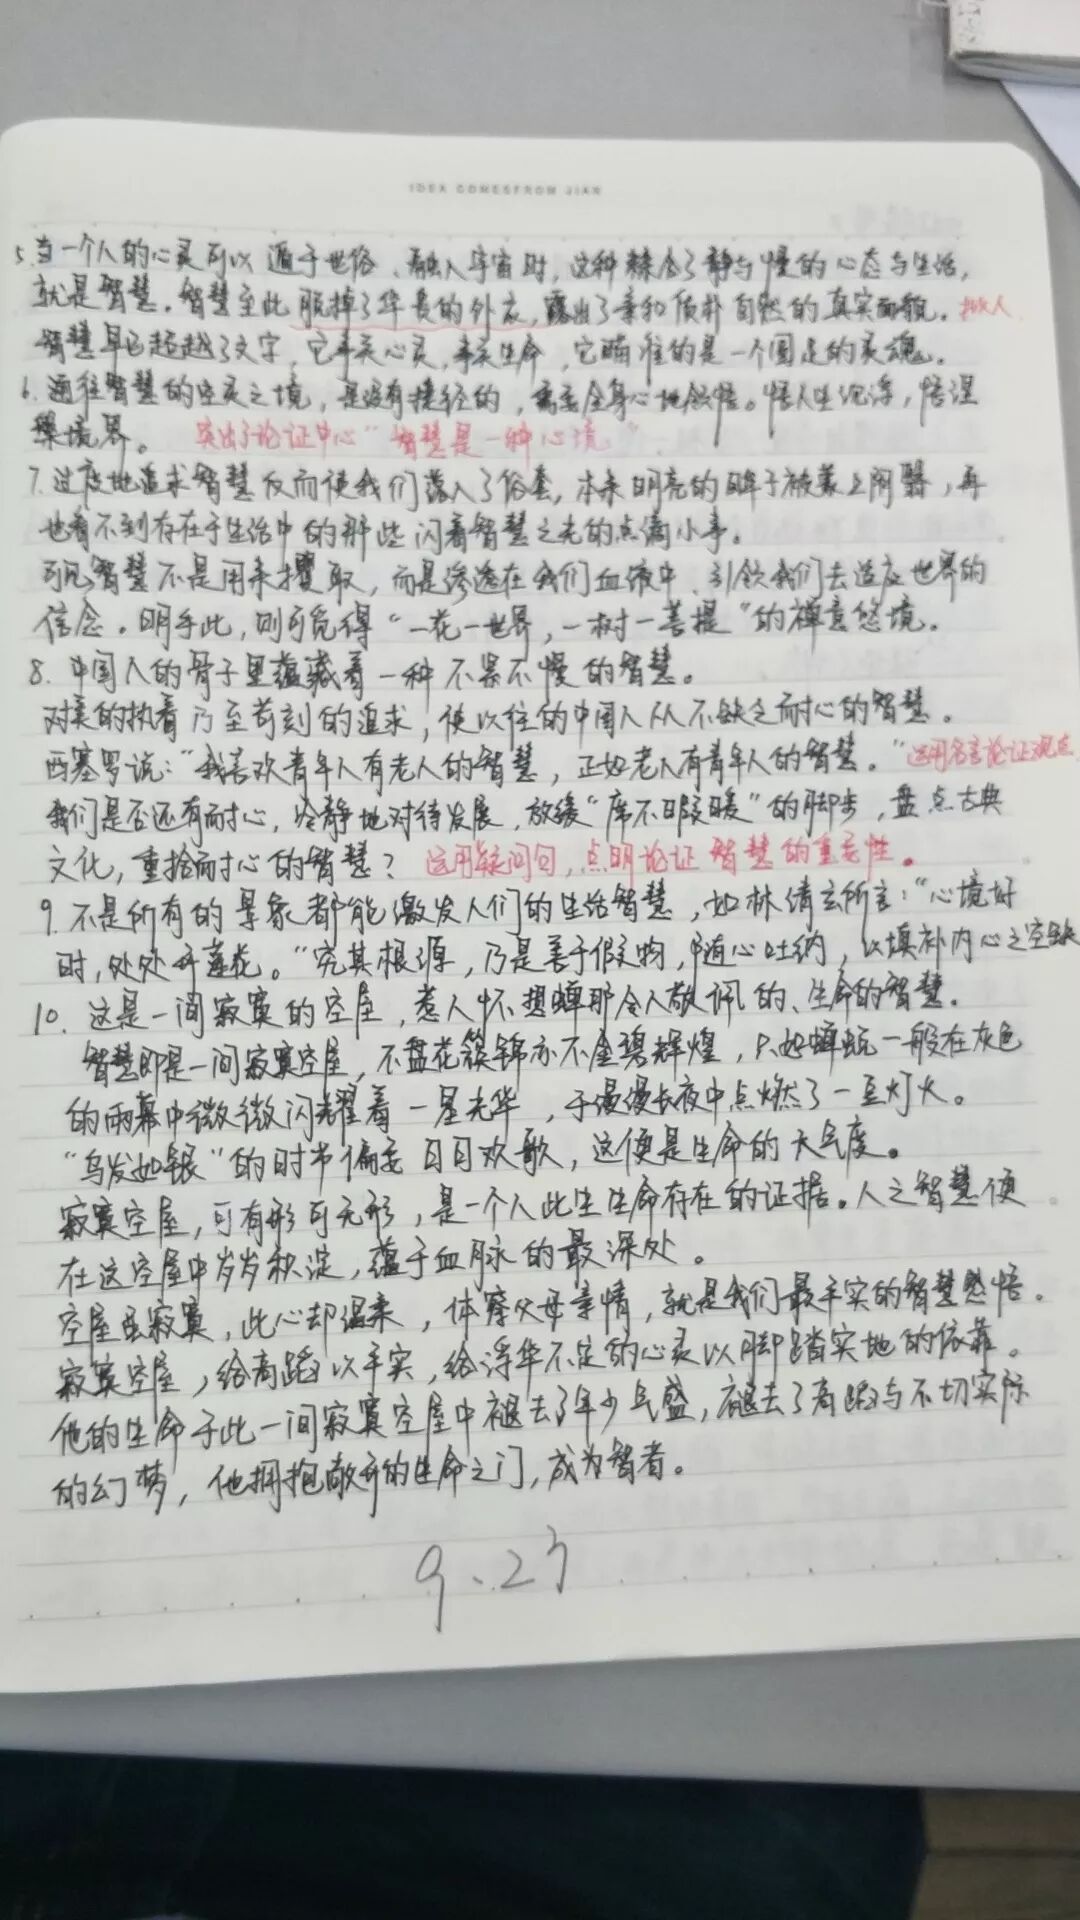 IDEA COMESFROM JIAN
5.当一个人的心灵可以遁于世俗、融入宇宙时,这种糅合了静与慢的心态与生活,
就是智慧。智慧至此脱掉了华美的外衣,露出了亲和质朴自然的真实面貌。拟人
智慧早已超越了文字,它事关心灵,事关生命,它瞄准的是一个圆足的灵魂。
6.通往智慧的空灵之境,是没有捷径的,需要全身心地领悟。悟人生沉浮,悟涅
槃境界。 突出了论证中心"智慧是一种心境"
7.过度地追求智慧反而使我们落入了俗套,本来明亮的眸子被蒙上阴翳,再
也看不到存在于生活中的那些闪着智慧之光的点滴小事。
可见智慧不是用来攫取,而是渗透在我们血液中、引领我们去适应世界的
信念。明乎此,则可觅得"一花一世界,一树一菩提"的禅意悠境。
8.中国人的骨子里蕴藏着一种不紧不慢的智慧。
对美的执着乃至苛刻的追求,使以往的中国人从不缺乏耐心的智慧。
西塞罗说:"我喜欢青年人有老人的智慧,正如老人有青年人的智慧。"运用名言论证观点
我们是否还有耐心,冷静地对待发展,放缓"席不暇暖"的脚步,盘点古典
文化,重拾耐心的智慧? 运用疑问句,点明论证智慧的重要性。
9.不是所有的景象都能激发人们的生活智慧,如林清玄所言:"心境好
时,处处开莲花。"究其根源,乃是善于假物,随心吐纳,以填补内心之空缺
10.这是一间寂寞的空屋,惹人怀想蝉那令人敬佩的、生命的智慧。
智慧即是一间寂寞空屋,不是花簇锦亦不金碧辉煌,只如蝉蜕一般在灰色
的雨幕中微微闪耀着一星光华,于漫漫长夜中点燃了一豆灯火。
"乌发如银"的时节偏要日日欢歌,这便是生命的大气度。
寂寞空屋,可有形可无形,是一个人此生生命存在的证据。人之智慧便
在这空屋中岁岁积淀,蕴于血脉的最深处。
空屋虽寂寞,此心却温柔,体察父母亲情,就是我们最平实的智慧感悟。
寂寞空屋,给高蹈以平实,给浮华不定的心灵以脚踏实地的依靠。
他的生命于此一间寂寞空屋中褪去了年少气盛,褪去了高蹈与不切实际
的幻梦,他拥抱敞开的生命之门,成为智者。
9.23